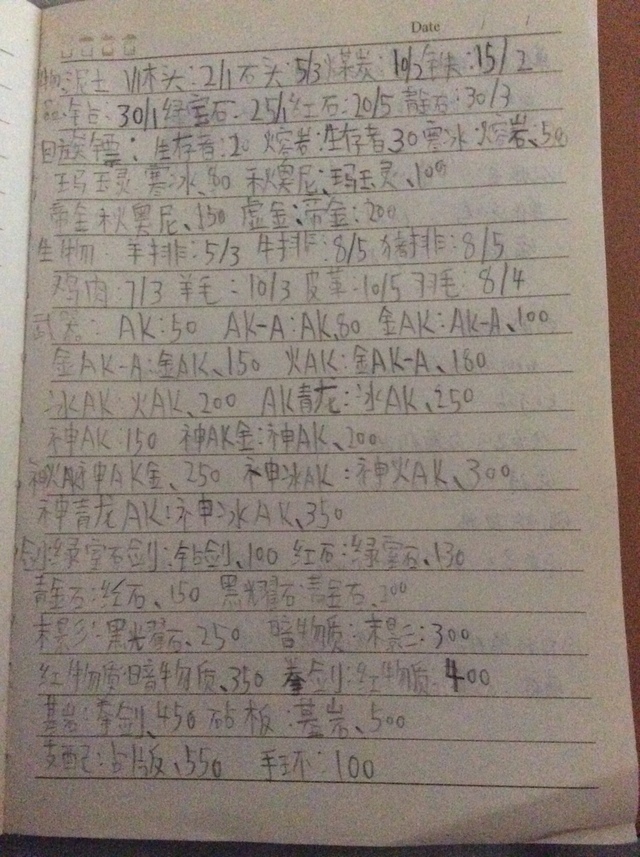 Date
物:泥土 1/1木头:2/1石头:5/3煤炭:10/2铁:15/2
品:钻:30/1绿宝石:25/1红石:20/5青石:30/3
回旋镖:生存者:20 熔岩:生存者30寒冰:熔岩、50
玛玉灵:寒冰、80 秋奥尼:玛玉灵、100
帝金:秋奥尼、150 虚金:帝金:200
生物 羊排:5/3 牛排:8/5 猪排:8/5
鸡肉:7/3 羊毛:10/3 皮革:10/5 羽毛:8/4
武器:AK:50 AK-A:AK、80 金AK:AK-A、100
金AK-A:金AK、150 火AK:金AK-A、180
冰AK:火AK、200 AK青龙:冰AK、250
神AK:150 神AK金:神AK、200
神火AK神AK金、250 神冰AK:神火AK、300
神青龙AK:神冰AK、350
剑:绿宝石剑:钻剑、100 红石:绿宝石、130
青金石:红石、150 黑光耀石:青金石、200
末影:黑光耀石、250 暗物质:末影:300
红物质:暗物质、350 拳剑:红物质:400
基岩:拳剑、450 石占板:基岩、500
支配:占板、550 手环:100